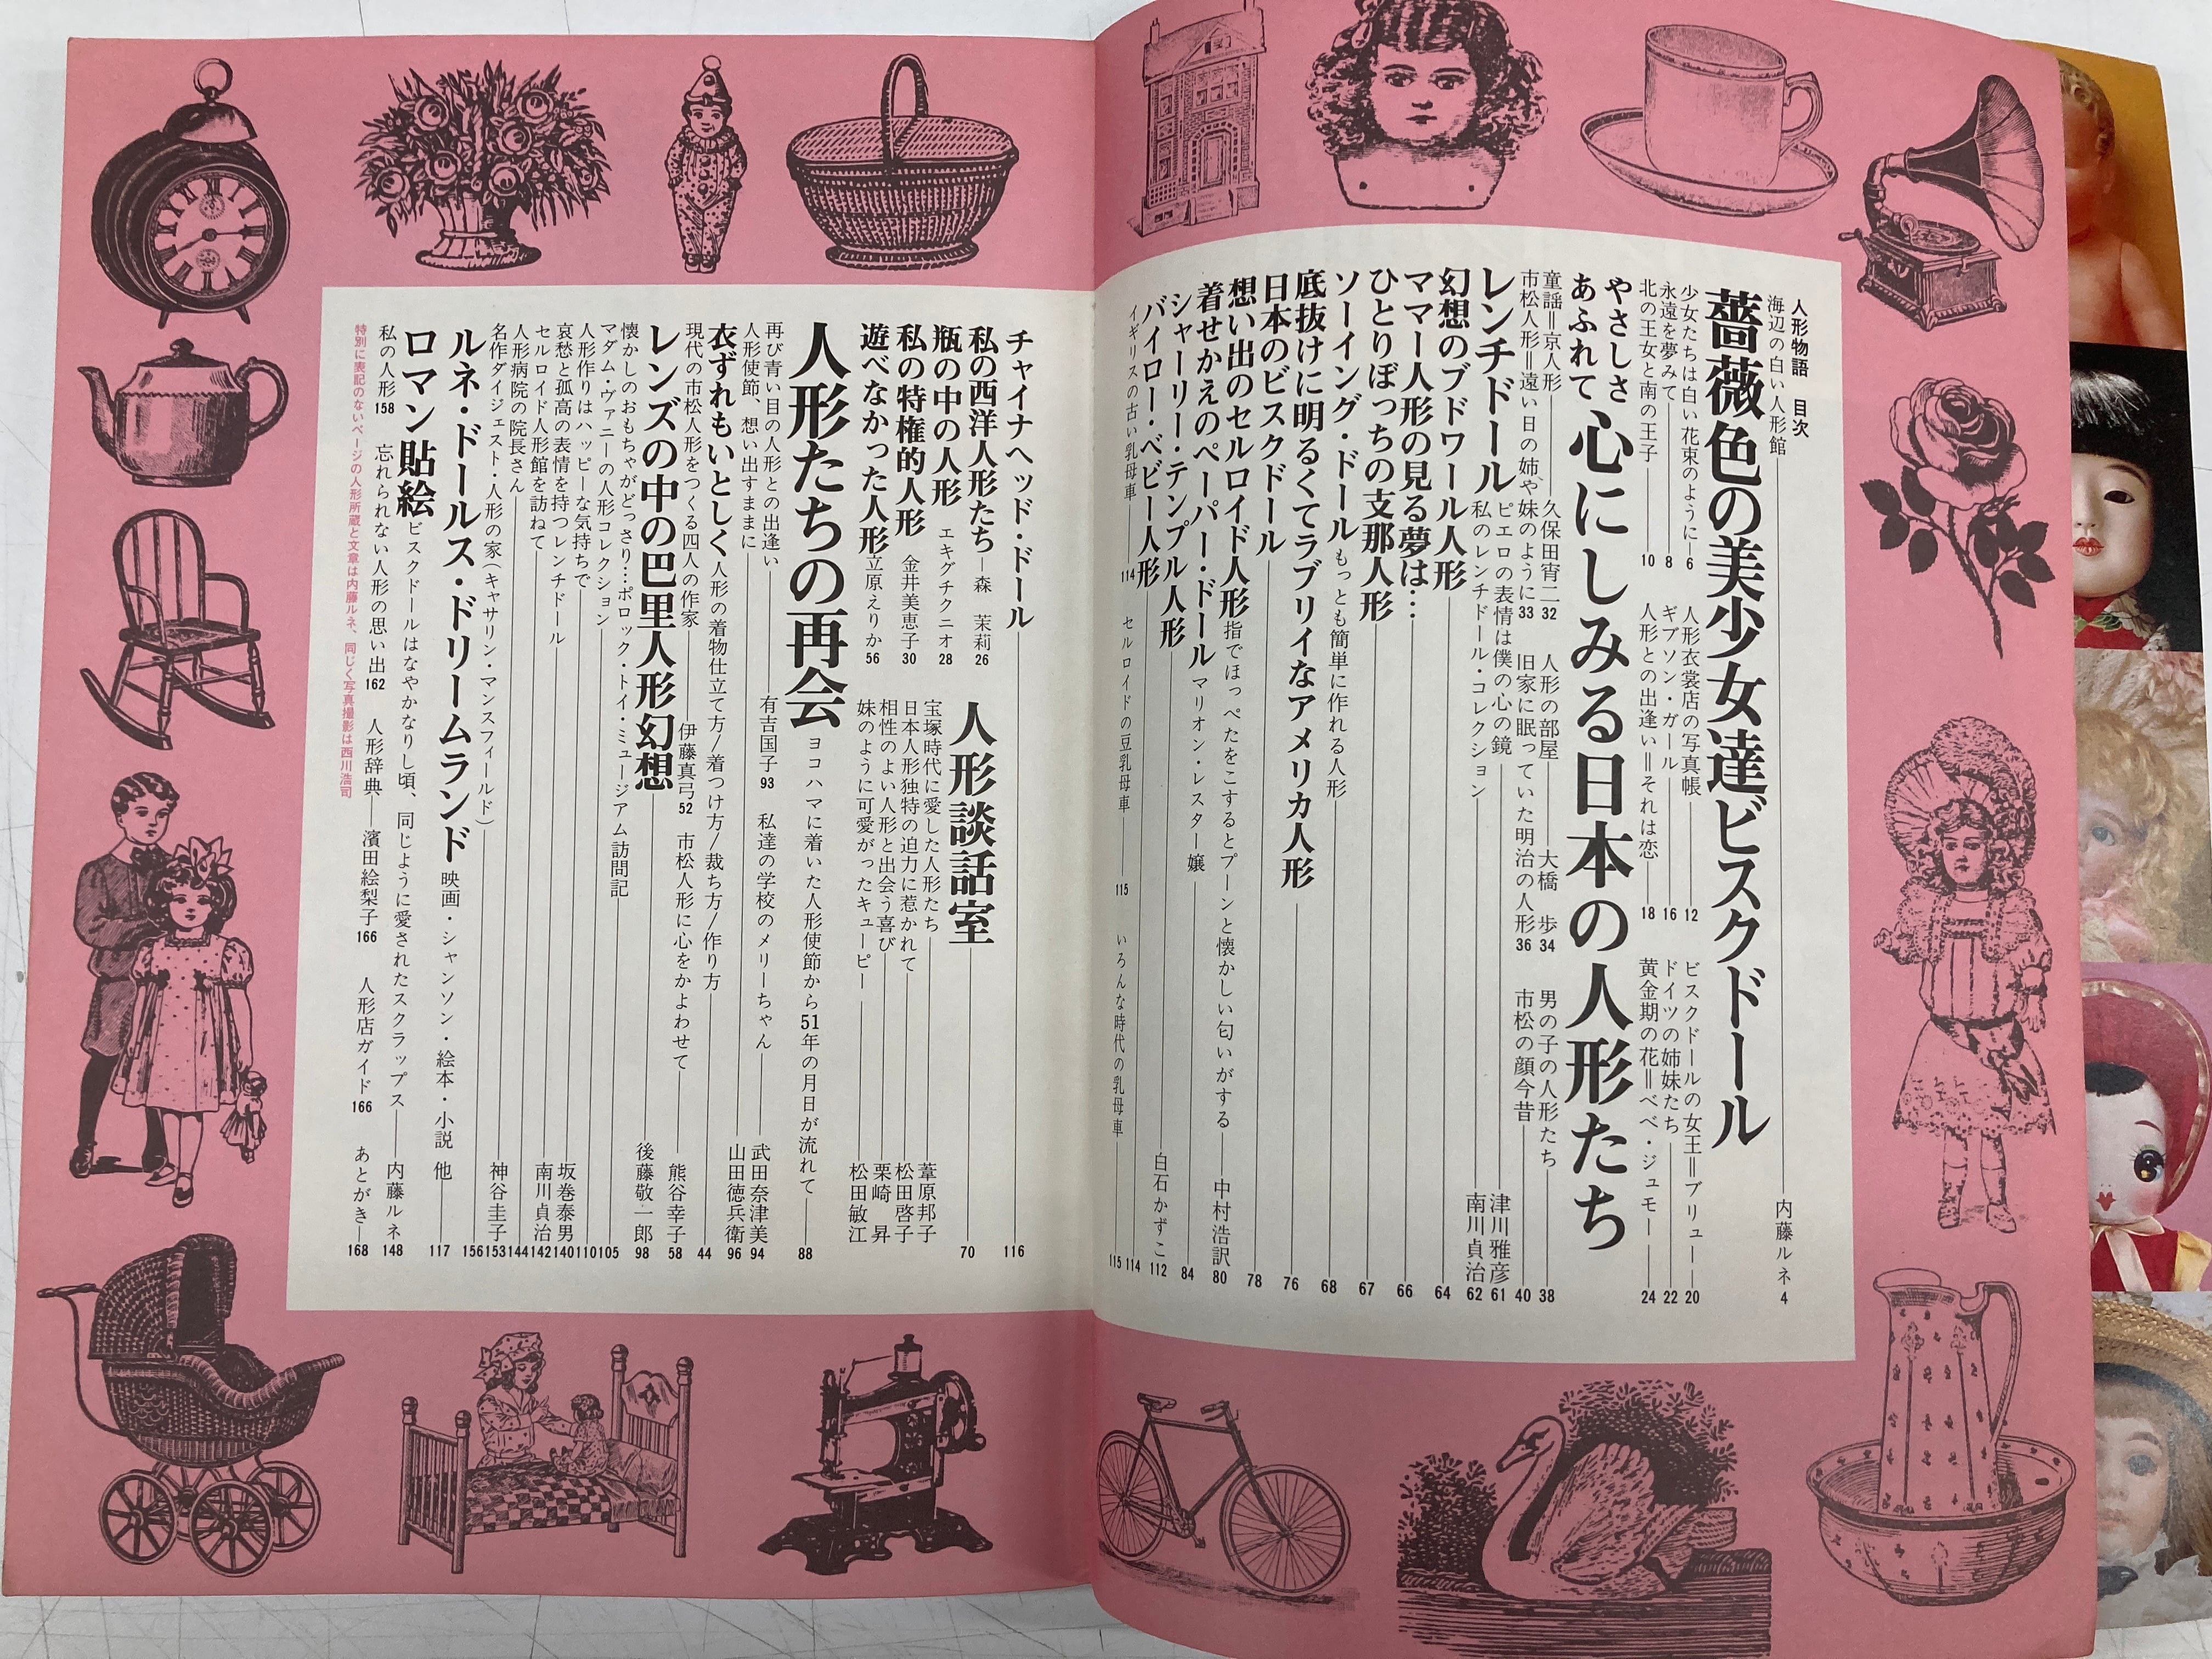 人形物語 目次
海辺の白い人形館 内藤ルネ 4
薔薇色の美少女達ビスクドール
少女たちは白い花束のように 6 人形衣裳店の写真帳 12 ビスクドールの女王=ブリュー 20
永遠を夢みて 8 ギブソン・ガール 16 ドイツの姉妹たち 22
北の王女と南の王子 10 人形との出逢い=それは恋 18 黄金期の花=ベベ・ジュモー 24
やさしさあふれて心にしみる日本の人形たち
童謡=京人形 久保田宵二 32 人形の部屋 大橋 歩 34 男の子の人形たち 38
市松人形=遠い日の姉や妹のように 33 旧家に眠っていた明治の人形 36 市松の顔今昔 40
レンチドール ピエロの表情は僕の心の鏡 津川雅彦 61
私のレンチドール・コレクション 南川貞治 62
幻想のブドワール人形 64
ママー人形の見る夢は… 66
ひとりぼっちの支那人形 67
ソーイング・ドール もっとも簡単に作れる人形 68
底抜けに明るくてラブリイなアメリカ人形 76
日本のビスクドール 78
想い出のセルロイド人形 指でほっぺたをこするとプーンと懐かしい匂いがする 中村浩訳 80
着せかえのペーパー・ドール マリオン・レスター嬢 84
シャーリー・テンプル人形 白石かずこ 112
バイロー・ベビー人形 114
イギリスの古い乳母車 114 セルロイドの豆乳母車 115 いろんな時代の乳母車 115
チャイナヘッド・ドール 116
私の西洋人形たち 森 茉莉 26
瓶の中の人形 エキグチクニオ 28
私の特権的人形 金井美恵子 30
遊べなかった人形 立原えりか 56
人形談話室 70
宝塚時代に愛した人形たち 葦原邦子
日本人形独特の迫力に惹かれて 松田啓子
相性のよい人形と出会う喜び 栗崎 昇
妹のように可愛がったキューピー 松田敏江
人形たちの再会 ヨコハマに着いた人形使節から51年の月日が流れて 88
再び青い目の人形との出逢い 有吉国子 93 私達の学校のメリーちゃん 武田奈津美 94
人形使節、想い出すままに 山田徳兵衛 96
衣ずれもいとしく 人形の着物仕立て方/着つけ方/裁ち方/作り方 44
現代の市松人形をつくる四人の作家 伊藤真弓 52 市松人形に心をかよわせて 熊谷幸子 58
レンズの中の巴里人形幻想 後藤敬一郎 98
懐かしのおもちゃがどっさり…ポロック・トイ・ミュージアム訪問記 105
マダム・ヴァニーの人形コレクション 110
人形作りはハッピーな気持ちで 坂巻泰男 140
哀愁と孤高の表情を持つレンチドール 南川貞治 142
セルロイド人形館を訪ねて 144
人形病院の院長さん 神谷圭子 153
名作ダイジェスト・人形の家(キャサリン・マンスフィールド) 156
ルネ・ドールス・ドリームランド 映画・シャンソン・絵本・小説 他 117
ロマン貼絵 ビスクドールはなやかなりし頃、同じように愛されたスクラップス 内藤ルネ 148
私の人形 158 忘れられない人形の思い出 162 人形辞典 濱田絵梨子 166 人形店ガイド 166 あとがき 168
特別に表記のないページの人形所蔵と文章は内藤ルネ、同じく写真撮影は西川浩司